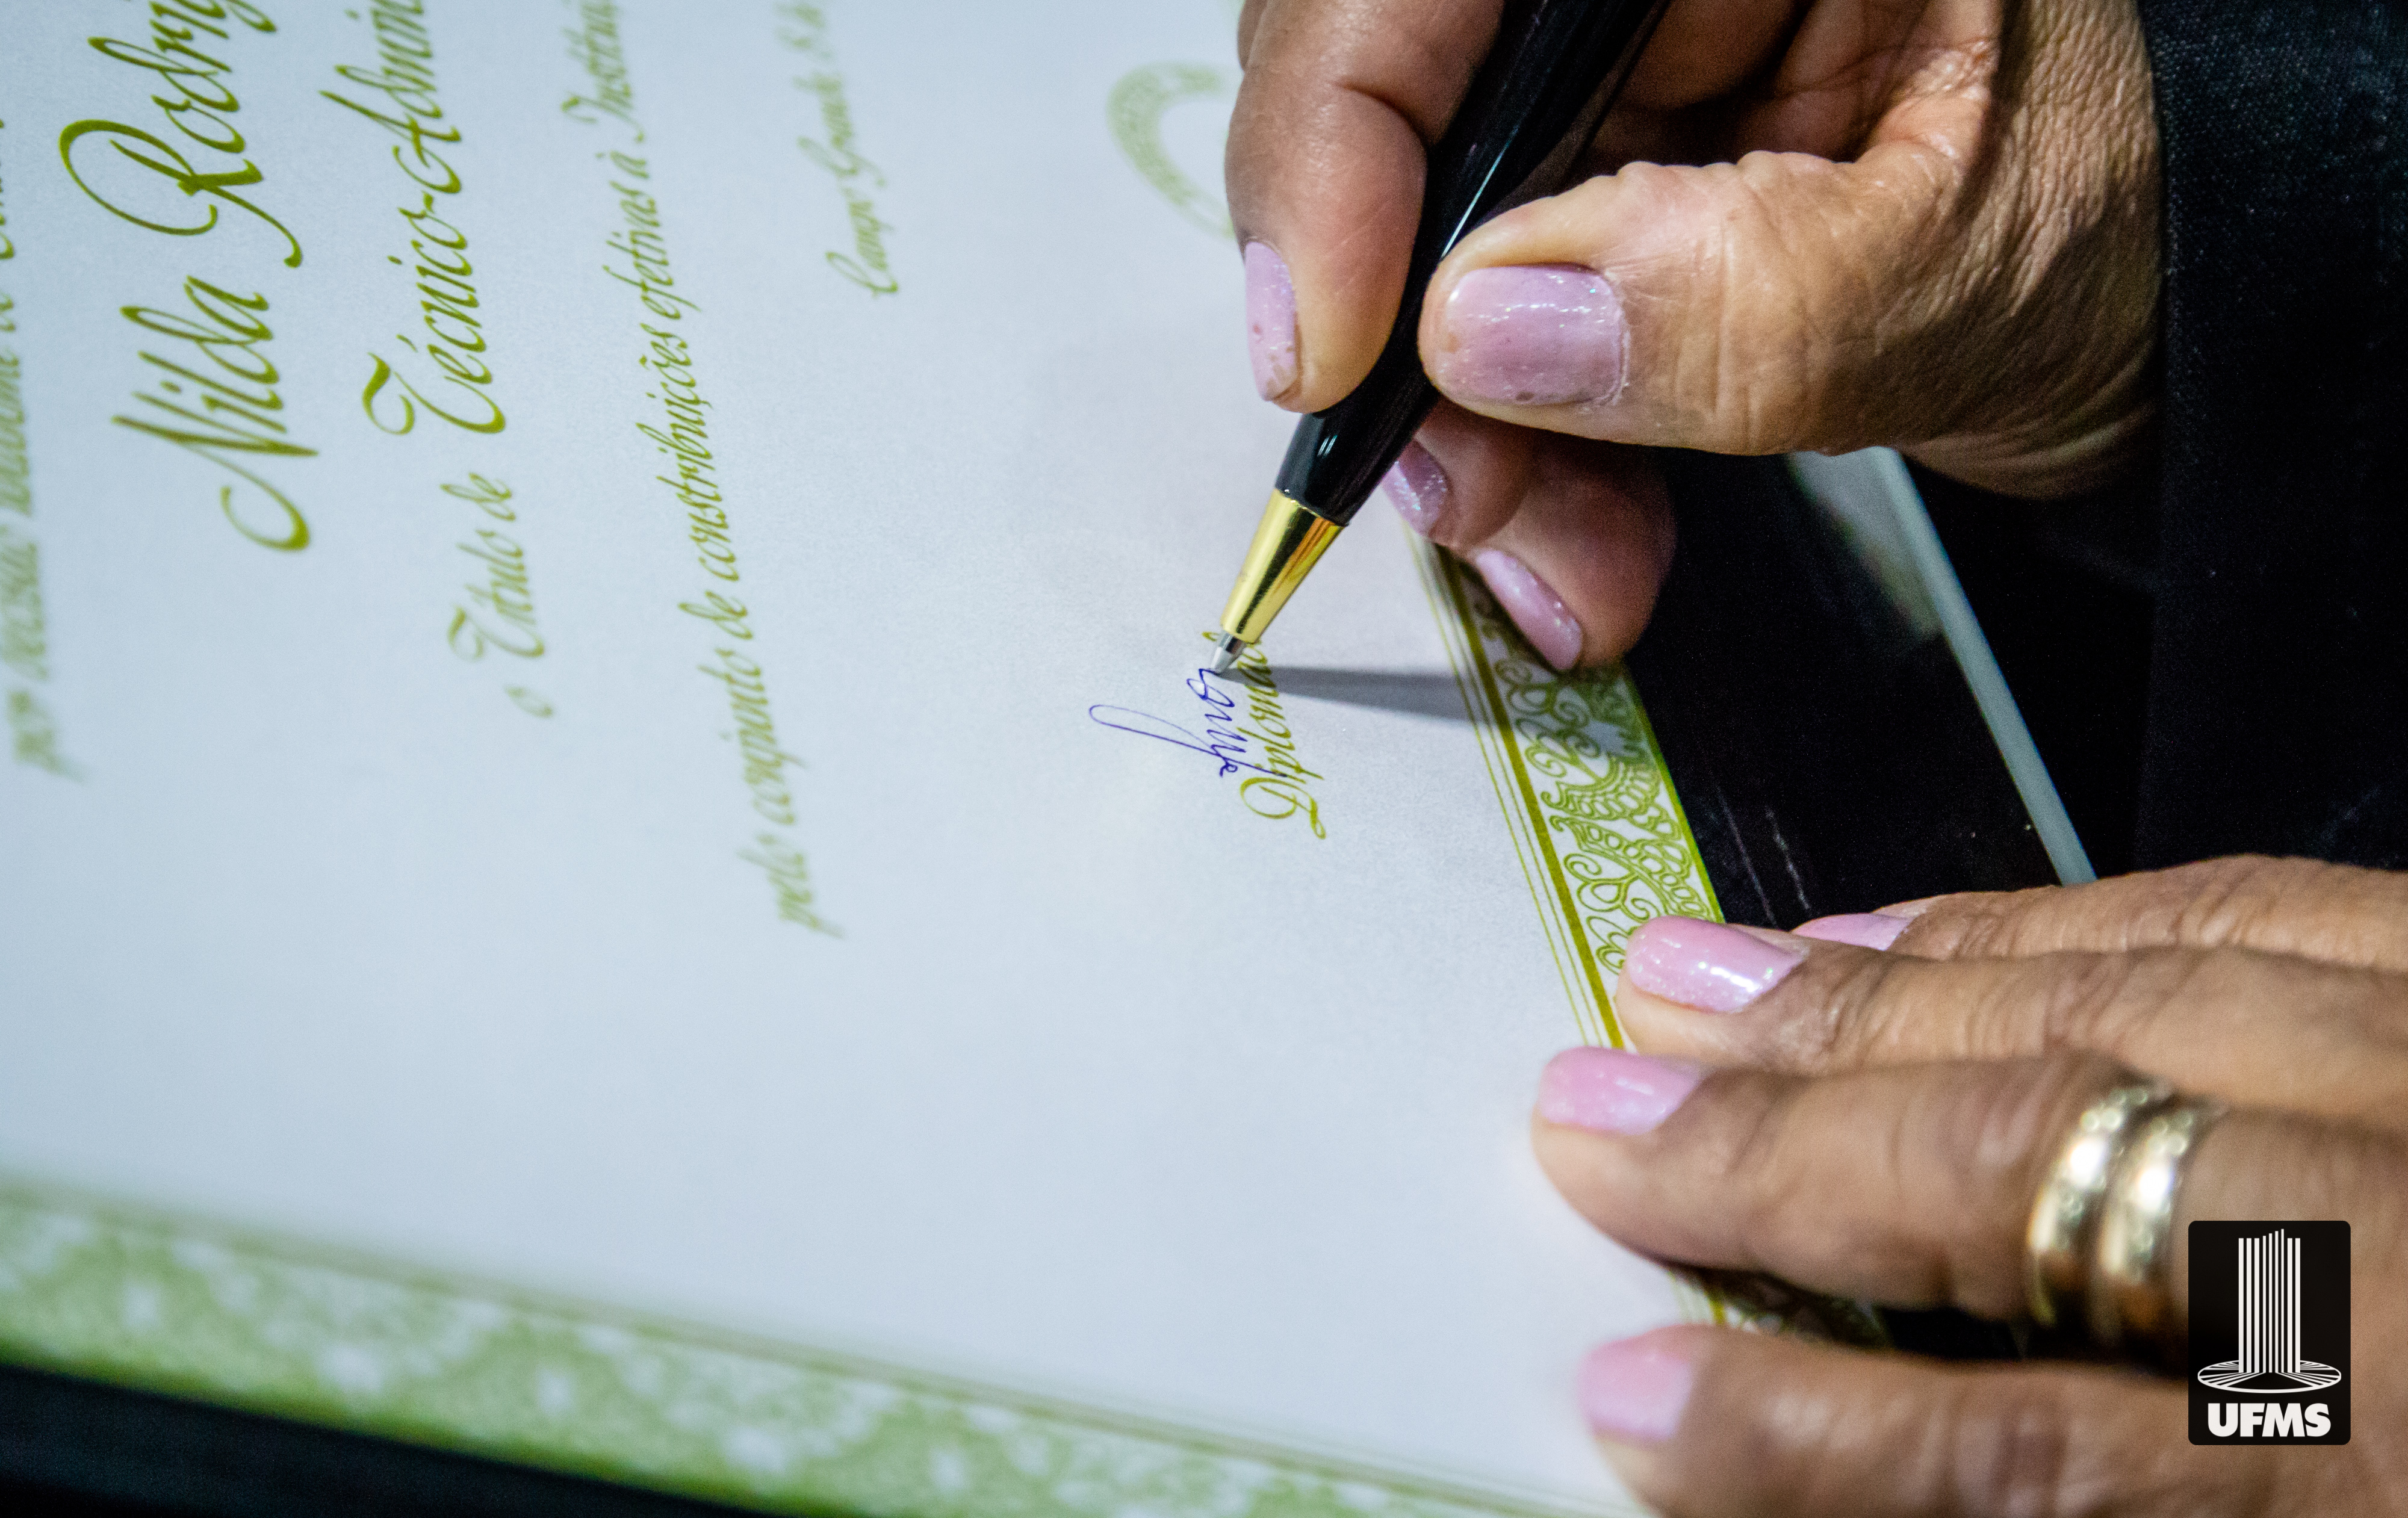 por decisão
Nilda Rodrig
o Título de Técnico-Admini
pelo conjunto de constribuições efetivas à Institui
Campo Grande, 8 de
Diplomado
UFMS